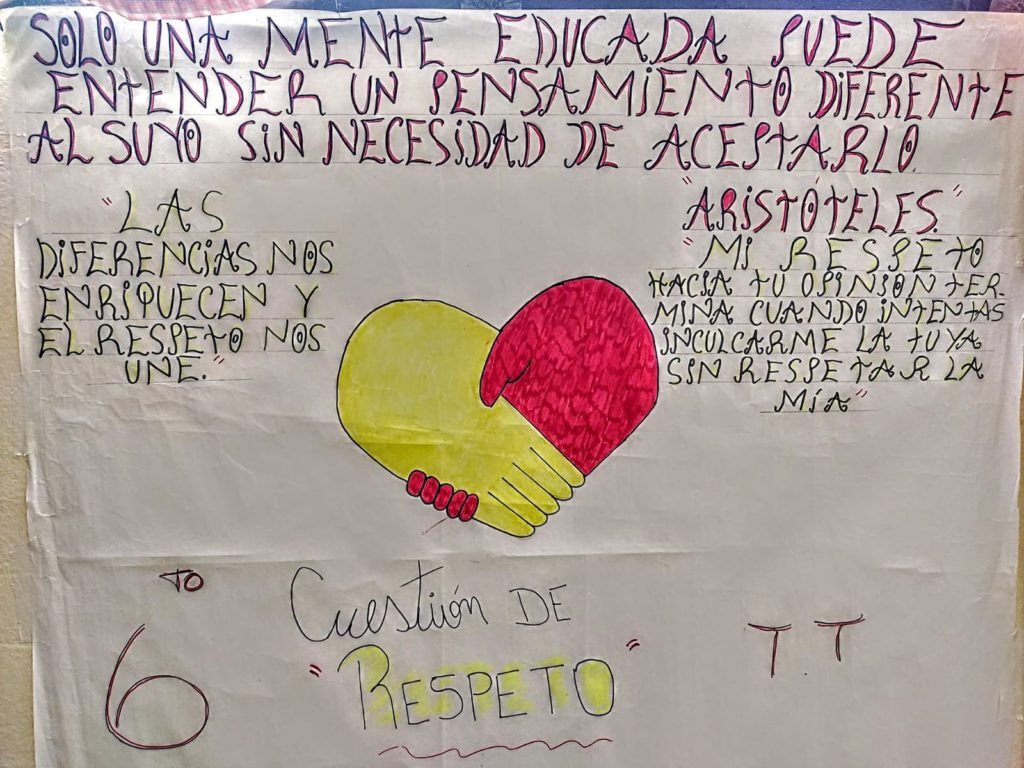 SOLO UNA MENTE EDUCADA PUEDE
ENTENDER UN PENSAMIENTO DIFERENTE
AL SUYO SIN NECESIDAD DE ACEPTARLO.
"ARISTÓTELES."
"LAS
DIFERENCIAS NOS
ENRIQUECEN Y
EL RESPETO NOS
UNE."
"MI RESPETO
HACIA TU OPINIÓN TER-
MINA CUANDO INTENTAS
INCULCARME LA TUYA
SIN RESPETAR LA
MÍA"
6TO
Cuestión DE
"RESPETO"
T.T